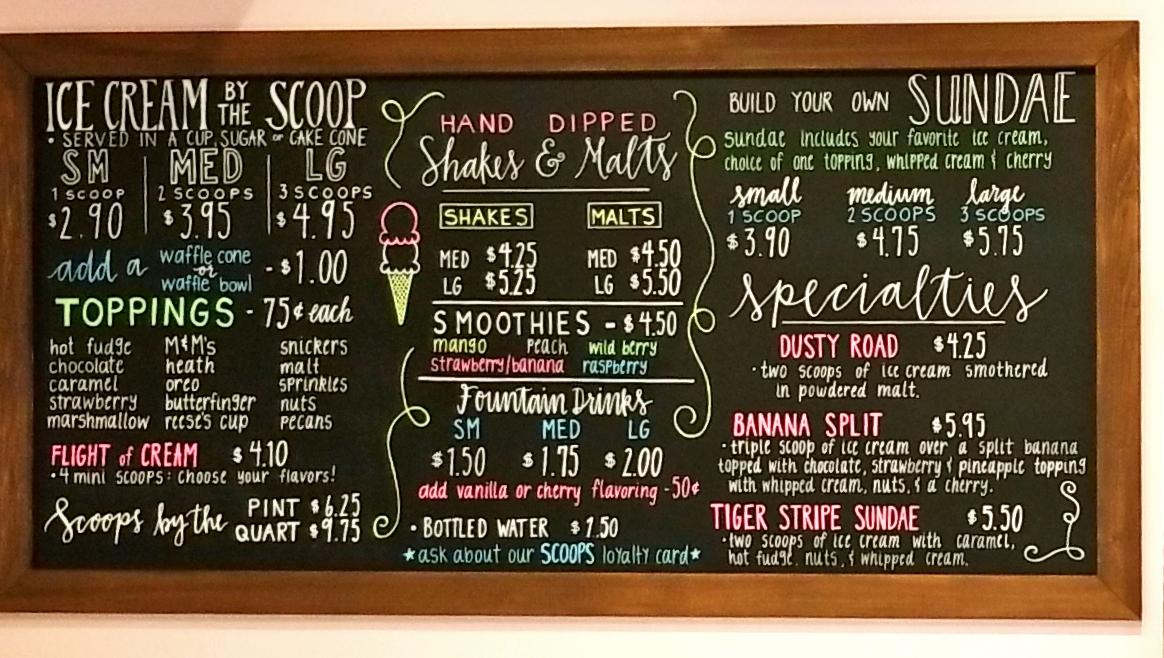 ICE CREAM BY THE SCOOP
• SERVED IN A CUP, SUGAR or CAKE CONE
SM MED LG
1 SCOOP 2 SCOOPS 3 SCOOPS
$2.90 $3.95 $4.95
add a waffle cone or waffle bowl - $1.00
TOPPINGS - 75¢ each
hot fudge M&M's snickers
chocolate heath malt
caramel oreo sprinkles
strawberry butterfinger nuts
marshmallow reese's cup pecans
FLIGHT of CREAM $4.10
• 4 mini scoops: choose your flavors!
Scoops by the PINT $6.25
QUART $9.75
HAND DIPPED
Shakes & Malts
SHAKES MALTS
MED $4.25 MED $4.50
LG $5.25 LG $5.50
SMOOTHIES - $4.50
mango peach wild berry
strawberry/banana raspberry
Fountain Drinks
SM MED LG
$1.50 $1.75 $2.00
add vanilla or cherry flavoring - 50¢
• BOTTLED WATER $1.50
★ask about our SCOOPS loyalty card★
BUILD YOUR OWN SUNDAE
sundae includes your favorite ice cream,
choice of one topping, whipped cream & cherry
small medium large
1 SCOOP 2 SCOOPS 3 SCOOPS
$3.90 $4.75 $5.75
specialties
DUSTY ROAD $4.25
• two scoops of ice cream smothered
in powdered malt.
BANANA SPLIT $5.95
• triple scoop of ice cream over a split banana
topped with chocolate, strawberry & pineapple topping
with whipped cream, nuts, & a cherry.
TIGER STRIPE SUNDAE $5.50
• two scoops of ice cream with caramel,
hot fudge, nuts, & whipped cream.